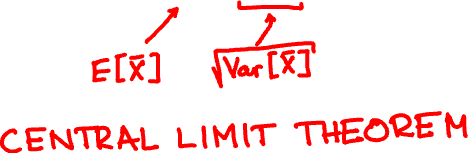 E[X̄] √Var[X̄]
CENTRAL LIMIT THEOREM